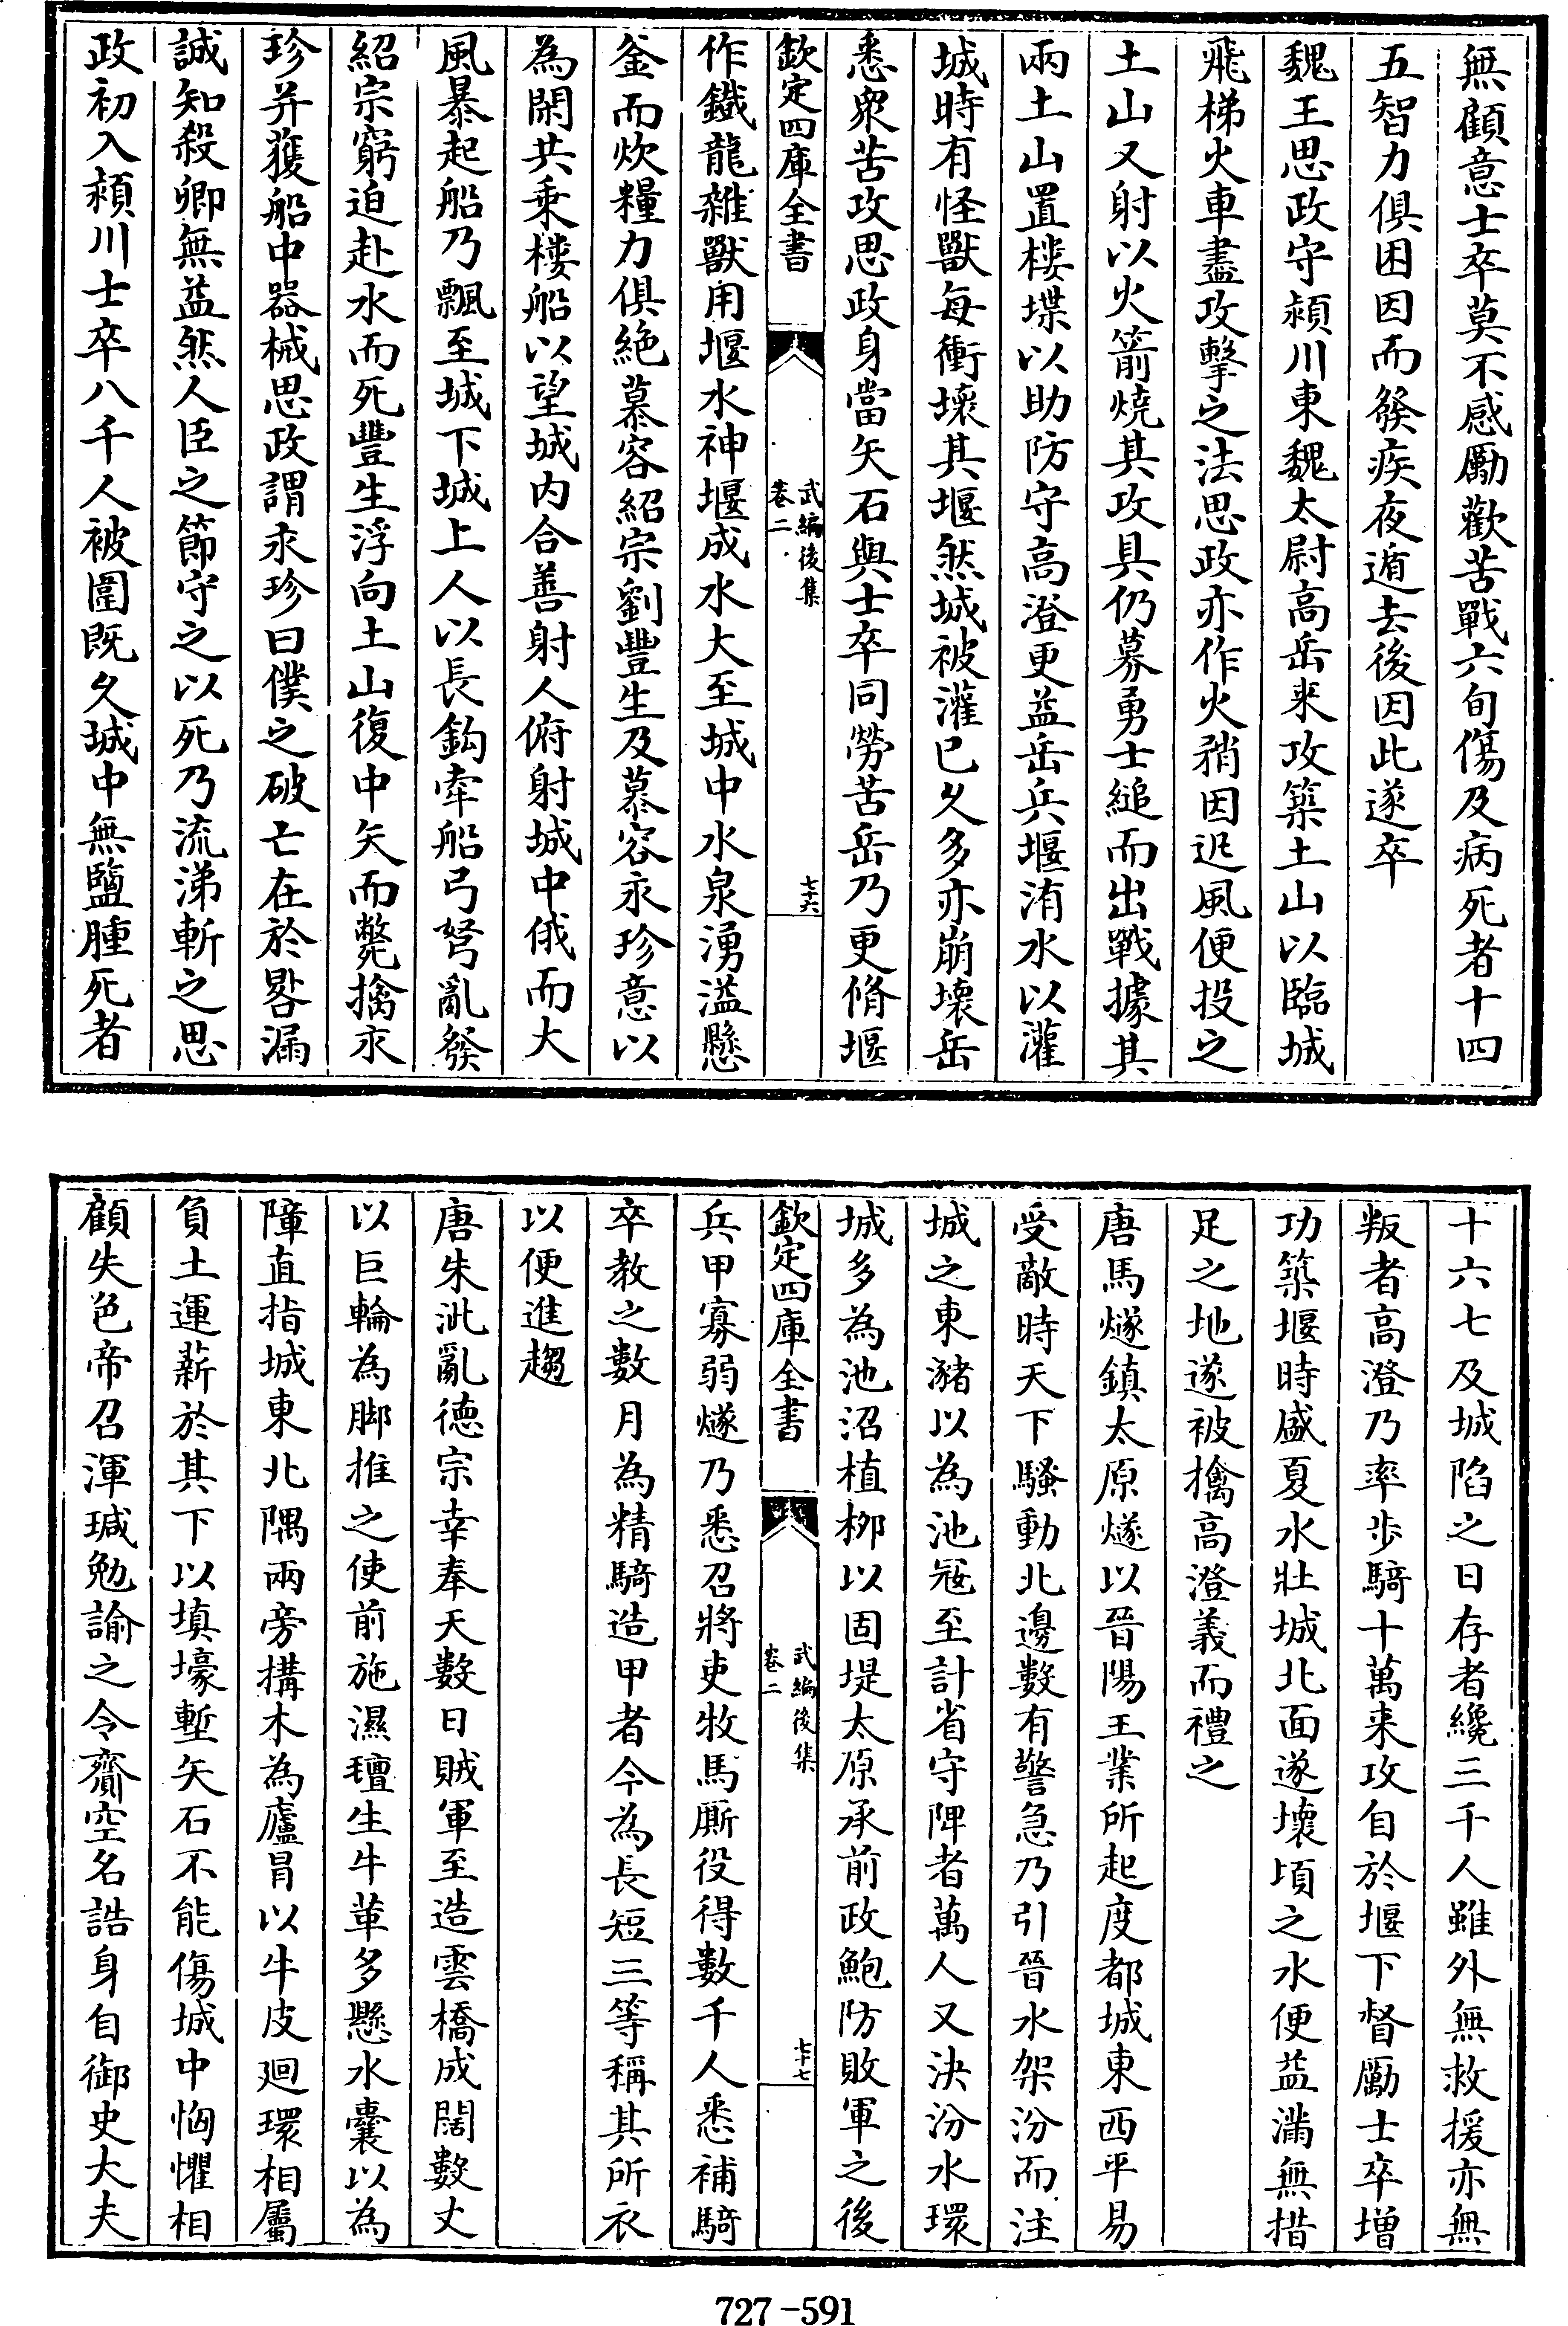 無顧意士卒莫不感勵歡苦戰六旬傷及病死者十四
五智力俱困因而發疾夜遁去後因此遂卒
魏王思政守潁川東魏太尉高岳来攻築土山以臨城
飛梯火車盡攻擊之法思政亦作火䂎因迅風便投之
土山又射以火箭燒其攻具仍募勇士縋而出戰據其
兩土山置楼堞以助防守高澄更益岳兵堰洧水以灌
城時有怪獸每衝壞其堰然城被灌已久多亦崩壞岳
悉衆苦攻思政身當矢石與士卒同勞苦岳乃更脩堰
欽定四庫全書
武編後集
卷二
七十六
作鐵龍雜獸用堰水神堰成水大至城中水泉湧溢懸
釜而炊糧力俱絶慕容紹宗劉豐生及慕容永珍意以
為閑共乘楼船以望城内令善射人俯射城中俄而大
風暴起船乃飄至城下城上人以長鈎牽船弓弩亂發
紹宗窮迫赴水而死豐生浮向土山復中矢而斃擒永
珍并獲船中器械思政謂永珍曰僕之破亡在於晷漏
誠知殺卿無益然人臣之節守之以死乃流涕斬之思
政初入潁川士卒八千人被圍既久城中無鹽腫死者
十六七及城陷之日存者纔三千人雖外無救援亦無
叛者高澄乃率步騎十萬来攻自於堰下督勵士卒增
功築堰時盛夏水壯城北面遂壞頃之水便益滿無措
足之地遂被擒高澄義而禮之
唐馬燧鎮太原燧以晉陽王業所起度都城東西平易
受敵時天下騷動北邊數有警急乃引晉水架汾而注
城之東瀦以為池冦至計省守陴者萬人又決汾水環
城多為池沼植栁以固堤太原承前政鮑防敗軍之後
欽定四庫全書
武編後集
卷二
七十七
兵甲寡弱燧乃悉召將吏牧馬厮役得數千人悉補騎
卒教之數月為精騎造甲者令為長短三等稱其所衣
以便進趨
唐朱泚亂德宗幸奉天數日賊軍至造雲橋成闊數丈
以巨輪為脚推之使前施濕氊生牛革多懸水囊以為
障直指城東北隅兩旁搆木為廬冐以牛皮廻環相屬
負土運薪於其下以填壕塹矢石不能傷城中恟懼相
顧失色帝召渾瑊勉諭之令齎空名誥身自御史大夫
727-591